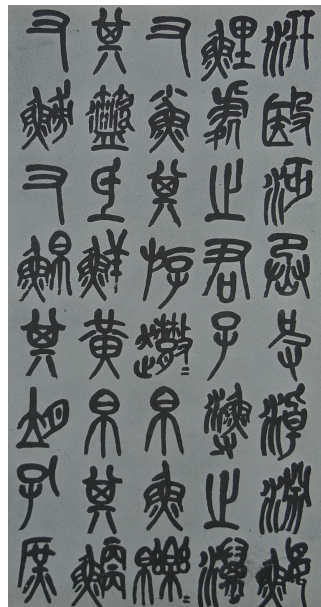 汧殹沔丞皮淖淵鰋
鯉處之君子漁之澫
又鯊其斿帛魚皪
其氐鮮黃帛其鯾
又又鮊其孔庶